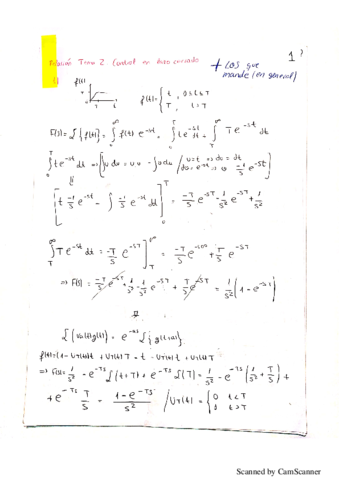 Relación Tema 2 Control en lazo cerrado
+ LOS que mande (en general)
1
1) f(t)
f(t) = { t, 0≤t≤T
T, t>T
F(s) = ℒ{f(t)} = ∫₀^∞ f(t) e^{-st} = ∫₀^T t e^{-st} dt + ∫_T^∞ T e^{-st} dt
∫₀^T t e^{-st} dt ⇒ (∫u dv = uv - ∫v du / u=t ⇒ du=dt
[t -1/s e^{-st} - ∫ -1/s e^{-st} dt]₀^T = -T/s e^{-sT} - 1/s² e^{-sT} + 1/s²
∫_T^∞ T e^{-st} dt = -T/s e^{-sT}]_T^∞ = -T/s e^{-s∞} + T/s e^{-sT}
⇒ F(s) = -T/s e^{-sT} + 1/s² - 1/s² e^{-sT} + T/s e^{-sT} = 1/s² (1 - e^{-sT})
ℒ{Ua(t)g(t)} = e^{-as} ℒ{g(t+a)}
f(t) = (1 - U_T(t))t + U_T(t) T = t - U_T(t) t + U_T(t) T
⇒ F(s) = 1/s² - e^{-Ts} ℒ(t+T) + e^{-Ts} ℒ(T) = 1/s² - e^{-Ts} (1/s² + T/s) +
+ e^{-Ts} T/s = (1 - e^{-Ts})/s² / U_T(t) = { 0 t<T
1 t>T
Scanned by CamScanner